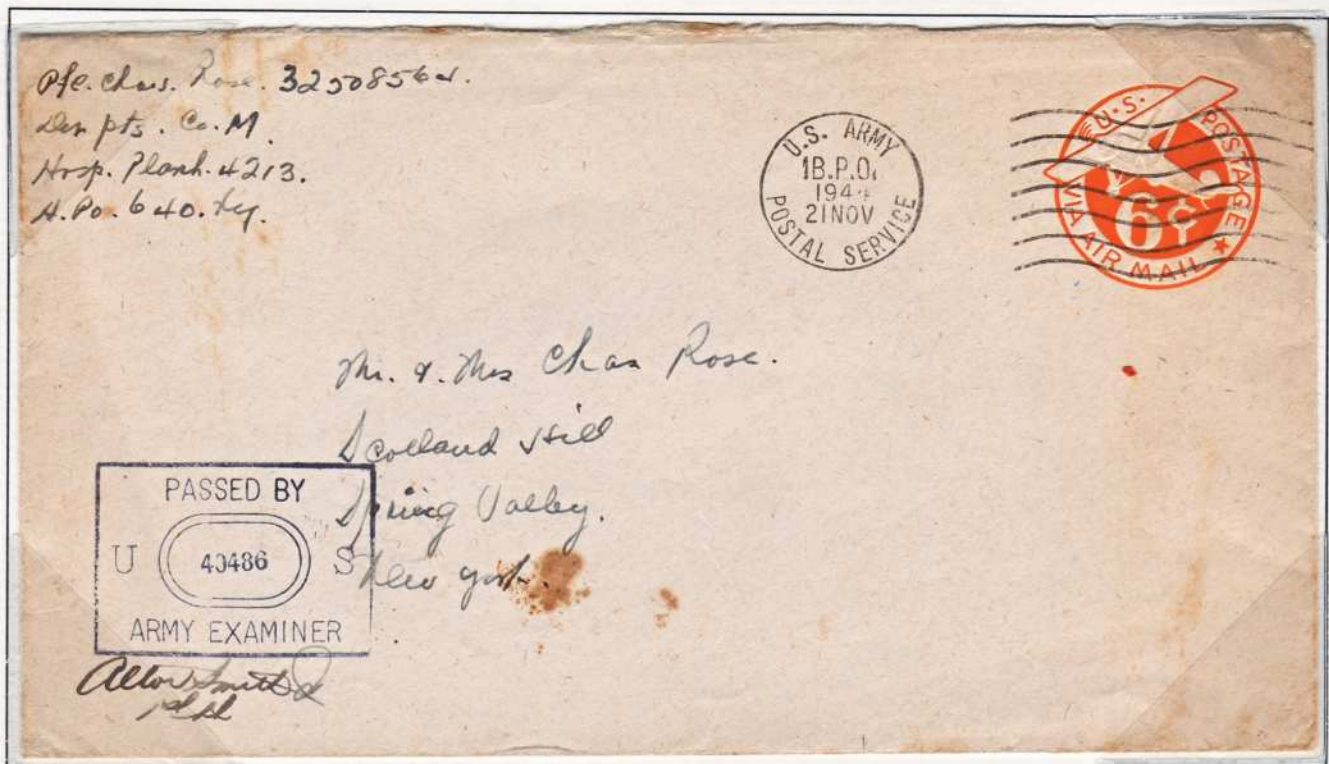 Pfc. Chas. Rose. 32508564.
Det. pts. Co. M
Hosp. Plant. 4213.
A.Po. 640. Ny.
U.S. ARMY
1B.P.O.
1944
21 NOV
POSTAL SERVICE
U.S. POSTAGE
6¢
VIA AIR MAIL
Mr. & Mrs Chas Rose.
Scotland Hill
Spring Valley.
New York.
PASSED BY
U 40486 S
ARMY EXAMINER
Alton Smith